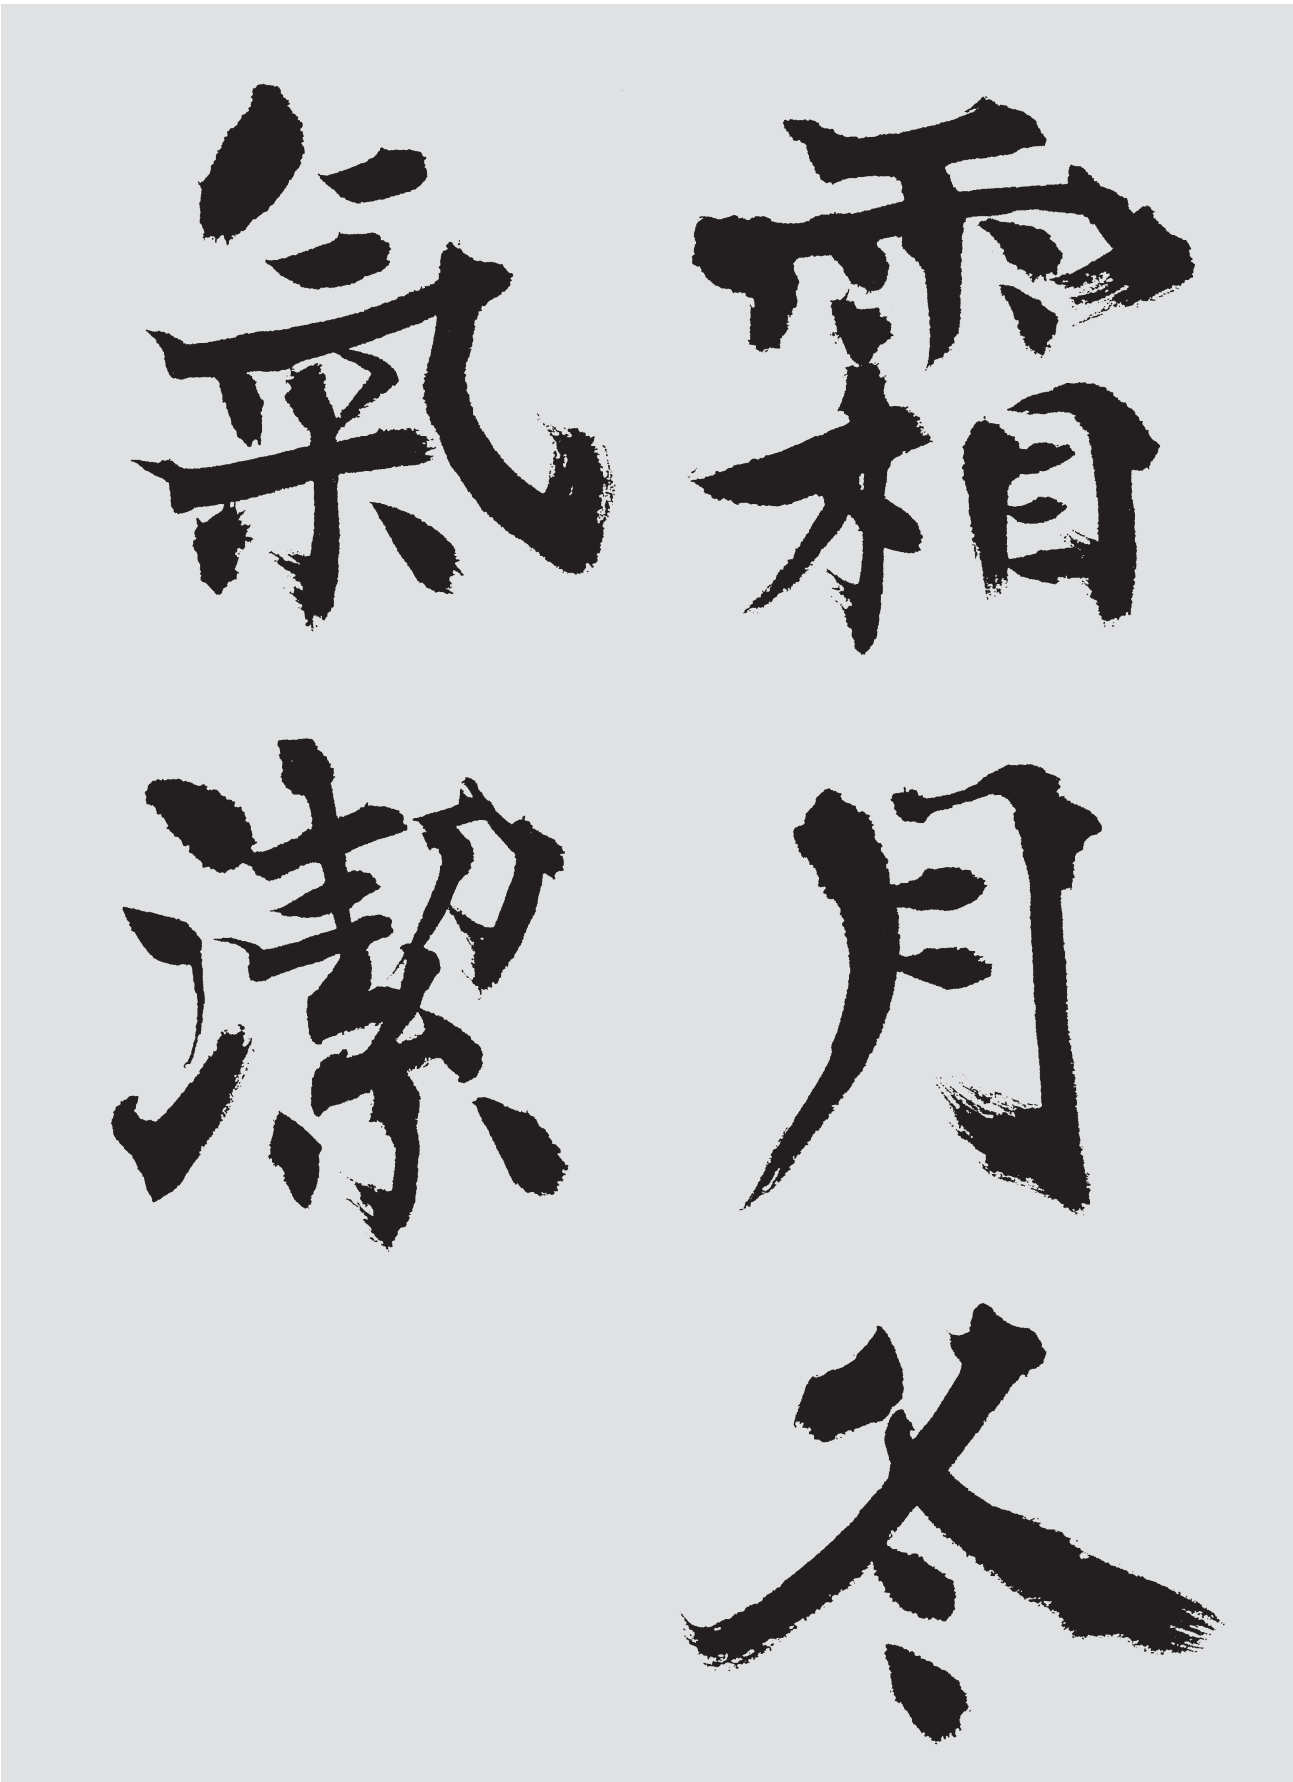 霜月冬
氣潔